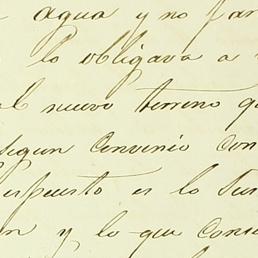 agua y no par
lo obligava a
el nuevo terreno qu
segun Convenio con
espuesto es lo
n y lo que Cons